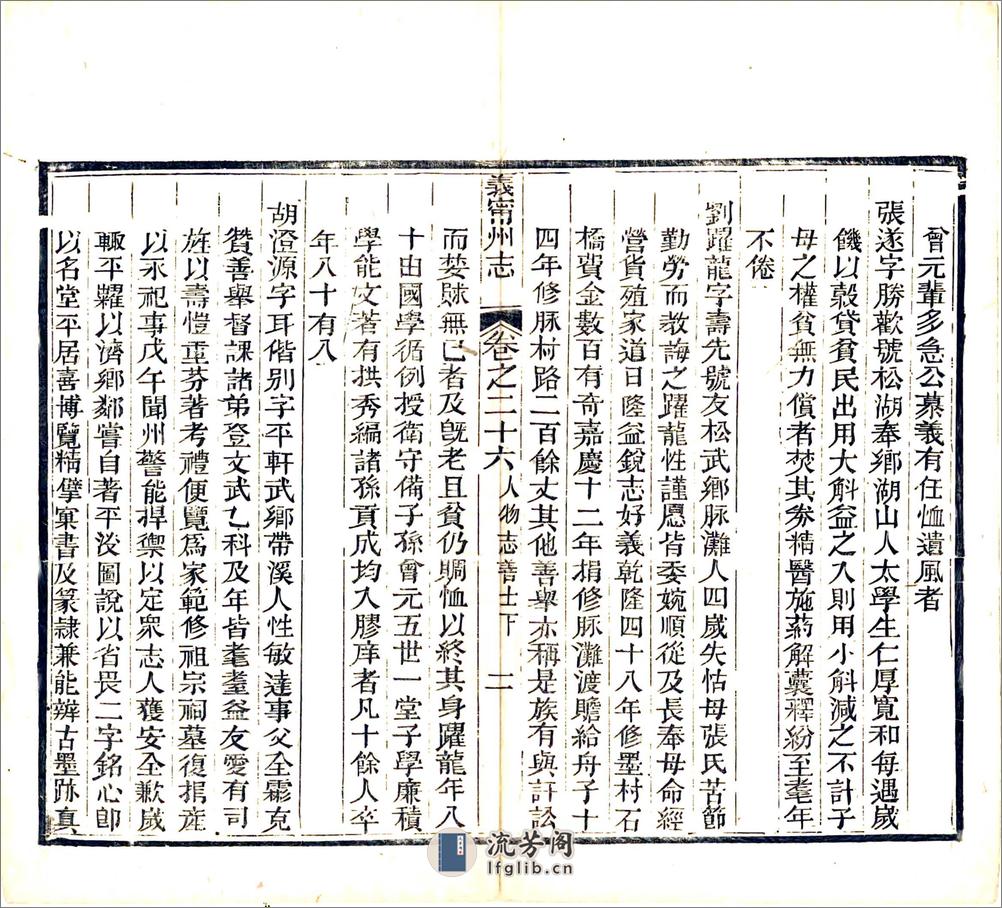 曾元輩多急公慕義有任恤遺風者
張遂字勝歡號松湖奉鄉湖山人太學生仁厚寬和每遇歲
饑以穀貸貧民出用大斛益之入則用小斛減之不計子
母之權貧無力償者焚其券精醫施藥解囊釋紛至耄年
不倦
劉躍龍字壽先號友松武鄉脉灘人四歲失怙母張氏苦節
勤勞而敎誨之躍龍性謹愿皆委婉順從及長奉母命經
營貨殖家道日隆益銳志好義乾隆四十八年修墨村石
橋費金數百有奇嘉慶十二年捐修脉灘渡贍給舟子十
四年修脉村路二百餘丈其他善舉亦稱是族有與訐訟
義甯州志 卷之二十六 人物志善士下 二
而婪賕無已者及旣老且貧仍賙恤以終其身躍龍年八
十由國學循例授衛守備子孫曾元五世一堂子學廉積
學能文著有拱秀編諸孫貢成均入膠庠者凡十餘人卒
年八十有八
胡澄源字耳偕別字平軒武鄉帶溪人性敏達事父全霦克
贊善舉督課諸弟登文武乙科及年皆耄耋益友愛有司
旌以壽愷重芬著考禮便覽爲家範修祖宗祠墓復捐產
以永祀事戊午聞州警能捍禦以定衆志人獲安全歉歲
輒平糶以濟鄉鄰嘗自著平淡圖說以省畏二字銘心卽
以名堂平居喜博覽精擘窠書及篆隷兼能辨古墨跡真
流芳阁
lfglib.cn